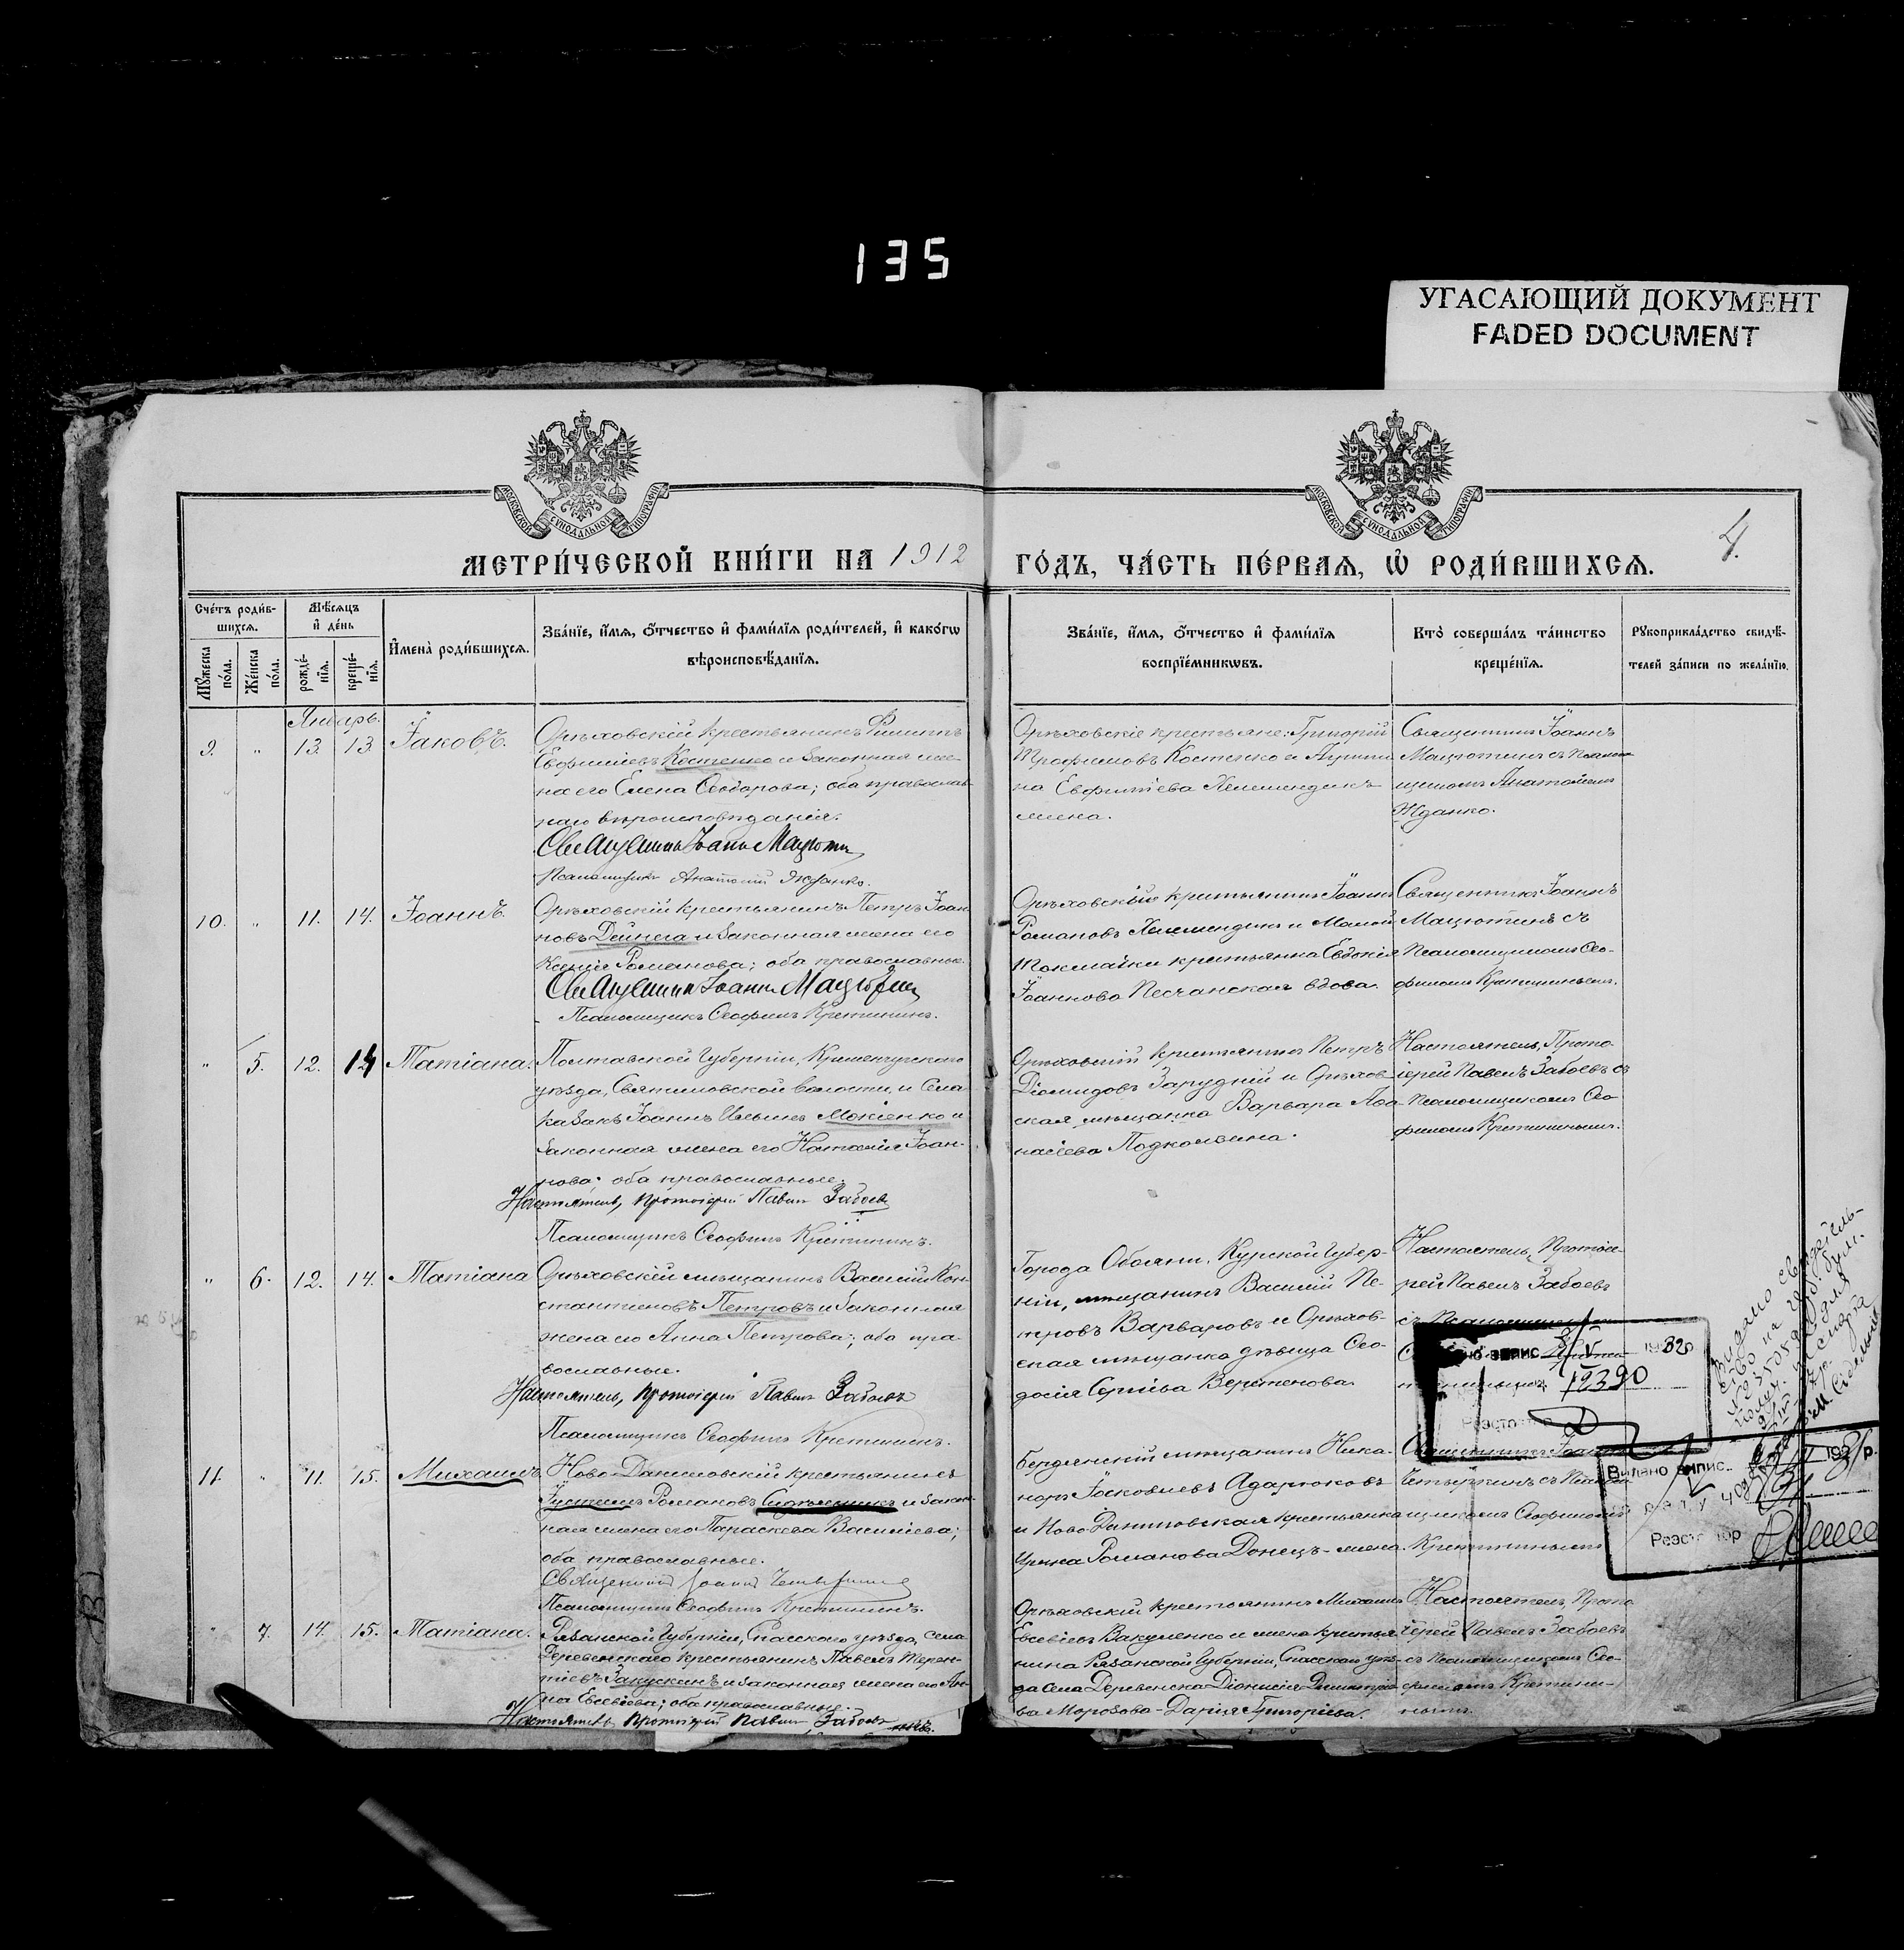 135
УГАСАЮЩИЙ ДОКУМЕНТ
FADED DOCUMENT
МОСКОВСКОЙ СѴНОДАЛЬНОЙ ТИПОГРАФІИ
МОСКОВСКОЙ СѴНОДАЛЬНОЙ ТИПОГРАФІИ
МЕТРИ́ЧЕСКОЙ КНИ́ГИ НА 1912 ГО́ДЪ, ЧА́СТЬ ПЕ́РВАЯ, Ѡ҆ РОДИ́ВШИХСЯ.
4.
Сче́тъ роди́в-
шихся.
Мѣ́сяцъ
и҆ де́нь
Му́жеска по́ла.
Же́нска по́ла.
рожде́-
нїя.
креще́-
нїя.
И҆мена̀ роди́вшихся.
Зва́нїе, и҆́мя, ѻ҆́тчество и҆ фами́лїя роди́телей, и҆ како́гѡ
вѣроисповѣ́данїя.
Зва́нїе, и҆́мя, ѻ҆́тчество и҆ фами́лїя
воспрїе́мникѡвъ.
Кто̀ соверша́лъ та́инство
креще́нїя.
Рꙋкоприкла́дство свидѣ́-
телей за́писи по жела́нїю.
Январь.
9. " 13. 13. Іаковъ.
Орѣховскій крестьянинъ Филиппъ
Евфиміевъ Костенко и законная же-
на его Елена Ѳеодорова; оба православ-
наго вѣроисповѣданія.
Священникъ Іоаннъ Мацютинъ
Псаломщикъ Анатолій Жданко.
Орѣховскіе крестьяне: Григорій
Трофимовъ Костенко и
на Евфиміева
жена.
Священникъ Іоаннъ
Мацютинъ съ Псалом
щикомъ Анатоліемъ
Жданко.
10. " 11. 14. Іоаннъ.
Орѣховскій крестьянинъ Петръ Іоан
новъ Дейнега и законная жена его
Ксенія Романова; оба православные.
Священникъ Іоаннъ Мацютинъ
Псаломщикъ Ѳеофилъ Кретининъ.
Орѣховскій крестьянинъ Іоаннъ
Романовъ и Малой
Токмачки крестьянка Евдокія
Іоаннова Песчанская вдова.
Священникъ Іоаннъ
Мацютинъ съ
Псаломщикомъ Ѳео-
филомъ Кретининымъ.
" 5. 12. 14 Татіана.
Полтавской Губерніи, Кременчугскаго
уѣзда, Святиловской волости, и Села
казакъ Іоаннъ Ильинъ Мокіенко и
законная жена его Наталія Іоан-
нова; оба православные.
Настоятель, Протоіерей Павелъ Забоевъ
Псаломщикъ Ѳеофилъ Кретининъ.
Орѣховскій крестьянинъ Петръ
Діомидовъ Зарудній и Орѣхов-
ская мѣщанка Варвара Аѳа-
насіева Подкользина.
Настоятель, Прото-
іерей Павелъ Забоевъ съ
Псаломщикомъ Ѳео
филомъ Кретининымъ.
" 6. 12. 14. Татіана
Орѣховскій мѣщанинъ Василій Кон-
стантиновъ Петровъ и законная
жена его Анна Петрова; оба пра-
вославные.
Настоятель, Протоіерей Павелъ Забоевъ
Псаломщикъ Ѳеофилъ Кретининъ.
Города Обояни, Курской Губер-
ніи, мѣщанинъ Василій Пе-
тровъ Варваровъ и Орѣхов-
ская мѣщанка дѣвица Ѳео-
досія Сергіева Веретенова.
Настоятель, Протоіе-
рей Павелъ Забоевъ
съ Псаломщикомъ
11. " 11. 15. Михаилъ.
Ново-Даниловскій крестьянинъ
Іустинъ Романовъ Сидѣльникъ и закон-
ная жена его Параскева Василіева;
оба православные.
Священникъ Іоаннъ Четыркинъ
Псаломщикъ Ѳеофилъ Кретининъ.
Бердянскій мѣщанинъ Ника-
норъ Іаковлевъ Адарюковъ
и Ново-Даниловская крестьянка
Ирина Романова Донецъ-жена.
Священникъ Іоаннъ
Четыркинъ съ Псалом
щикомъ Ѳеофиломъ
Кретининымъ
" 7. 14. 15. Татіана.
Рязанской Губерніи, Спасскаго уѣзда, села
Деревенскаго крестьянинъ Павелъ Терен-
тіевъ Закускинъ и законная жена его Ан-
на Евсевіева; оба православные.
Настоятель, Протоіерей Павелъ Забоевъ
Орѣховскій крестьянинъ Михаилъ
Евсевіевъ Вакуленко и жена крестья
нина Рязанской Губерніи, Спасскаго уѣз-
да села Деревенска Діонисія Димитріе
ва Морозова-Дарія Григоріева.
Настоятель, Прото
іерей Павелъ Забоевъ
съ Псаломщикомъ Ѳео-
филомъ Кретини-
нымъ.
1932
12390
Видано випис.
1931 р.